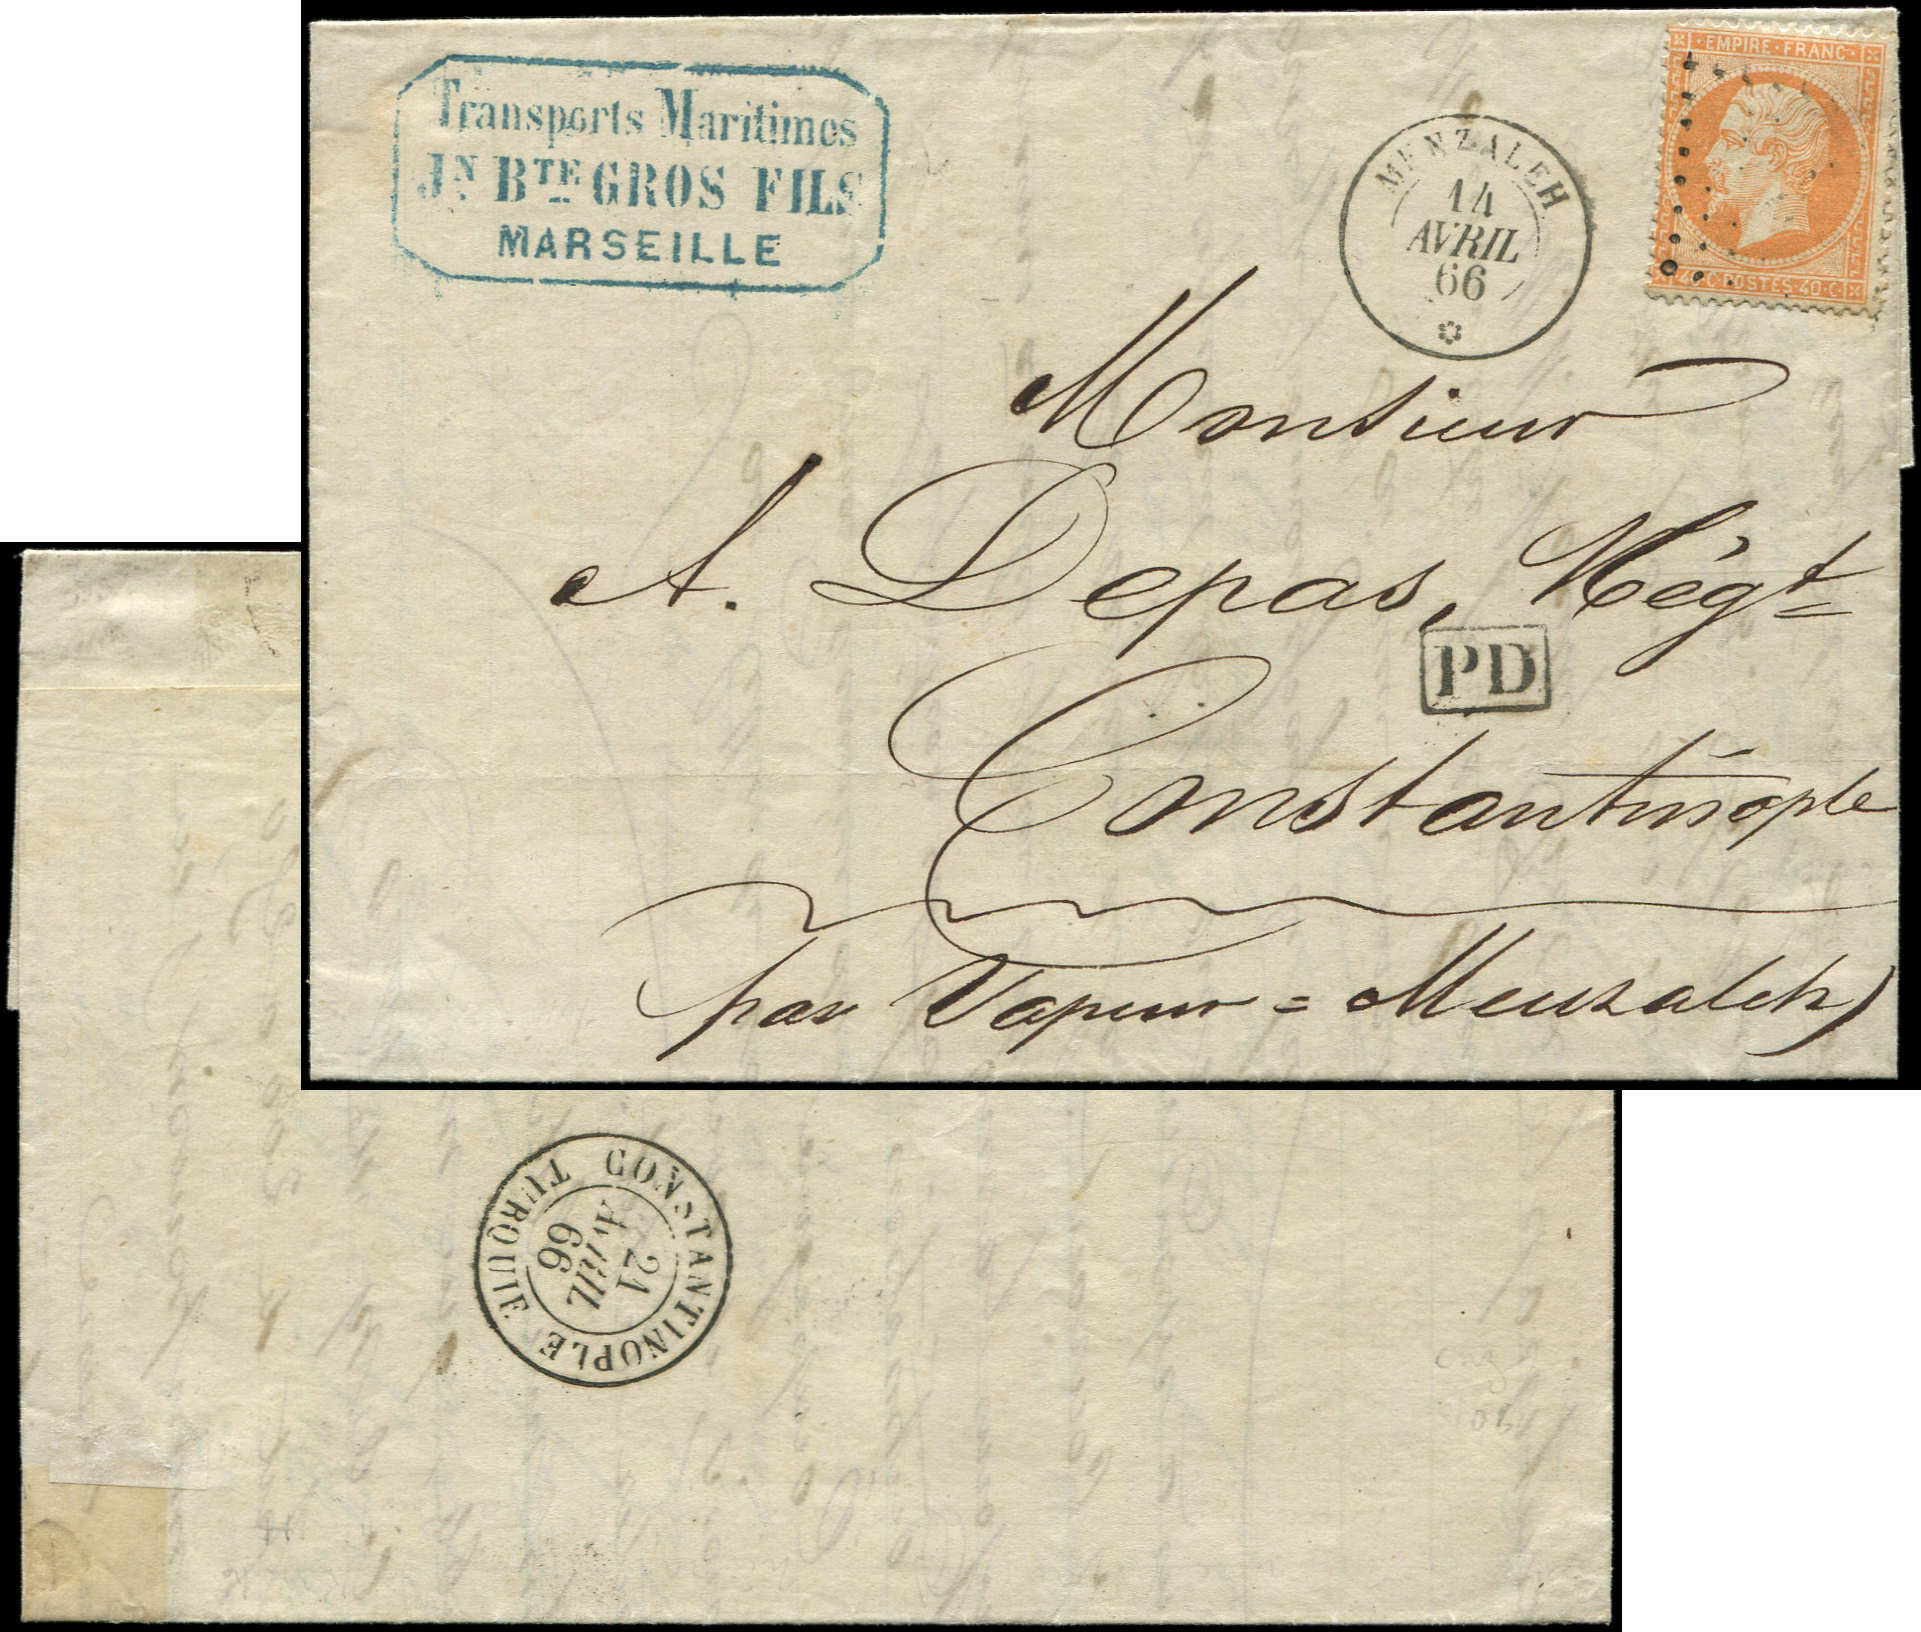 Transports Maritimes
Jn. Bte GROS FILS
MARSEILLE
MENZALEH
14
AVRIL
66
· EMPIRE · FRANC ·
40·C·POSTES·40·C·
Monsieur
A. Depas, Négt
PD
Constantinople
par Vapeur = Menzaleh
CONSTANTINOPLE TURQUIE
21
AVRIL
66